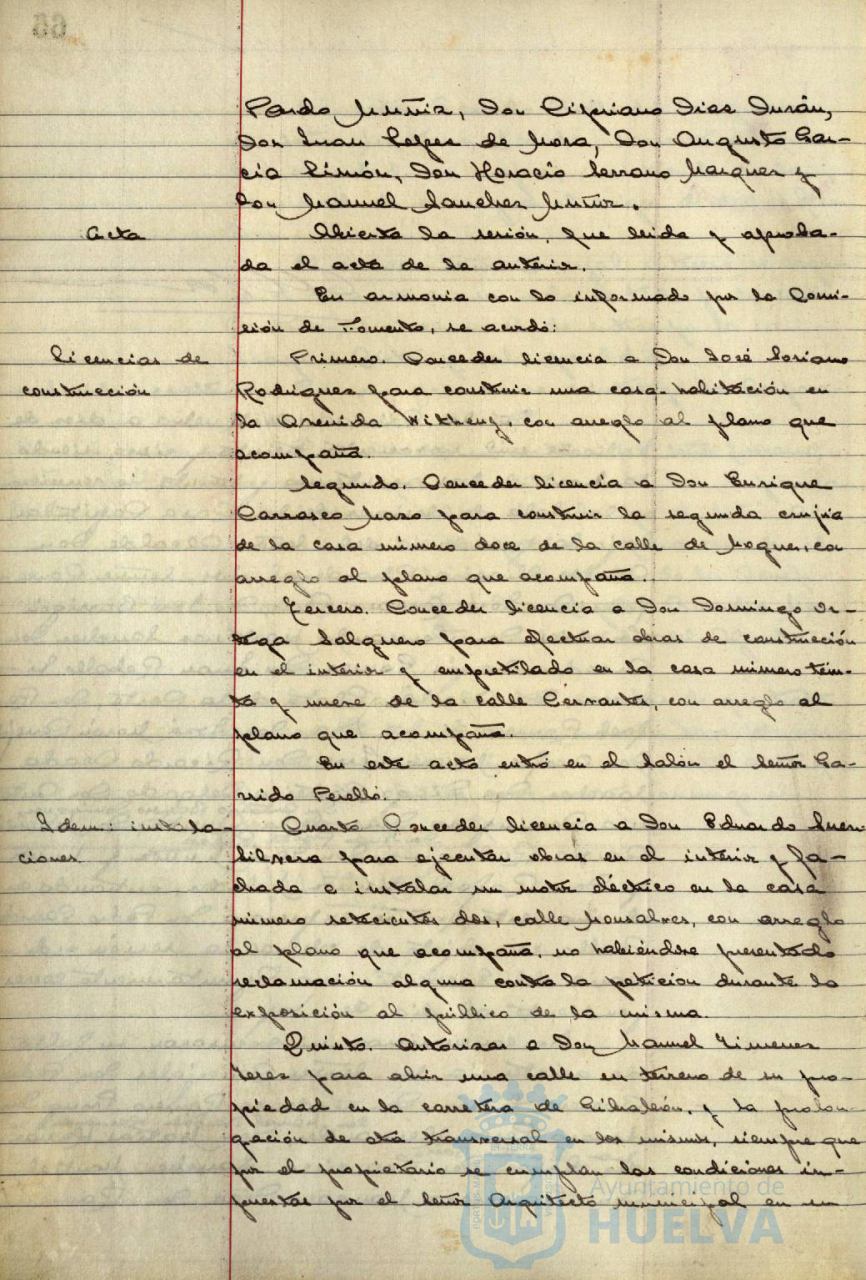 Pardo Muñiz, Don Cipriano Diaz Durán,
Don Juan Lopez de Mora, Don Augusto Gar-
cia Limón, Don Horacio Serrano Marquez y
Don Manuel Sanchez Muñoz.
Acta
Abierta la sesión, fue leida y aproba-
da el acta de la anterior.
En armonia con lo informado por la Comi-
sión de Fomento, se acordó:
Licencias de
construcción
Primero. Conceder licencia a Don José Soriano
Rodriguez para construir una casa-habitación en
la Avenida, con arreglo al plano que
acompaña.
Segundo. Conceder licencia a Don Enrique
Carrasco Mazo para construir la segunda crujia
de la casa número doce de la calle de Moguer, con
arreglo al plano que acompaña.
Tercero. Conceder licencia a Don Domingo Or-
tega Salguero para efectuar obras de construcción
en el interior y empretilado en la casa número trein-
ta y nueve de la calle Cervantes, con arreglo al
plano que acompaña.
En este acto entró en el Salón el Señor Ga-
rrido Perelló.
Idem: instala-
ciones
Cuarto Conceder licencia a Don Eduardo
Silvera para ejecutar obras en el interior y fa-
chada e instalar un motor eléctrico en la casa
número setecientos dos, calle Monsalves, con arreglo
al plano que acompaña, no habiéndose presentado
reclamación alguna contra la peticion durante la
exposición al público de la misma.
Quinto. Autorizar a Don Manuel Jimenez
Jerez para abrir una calle en terreno de su pro-
piedad en la carretera de Gibraleón, y la prolon-
gación de otra transversal en los mismos, siempre que
por el propietario se cumplan las condiciones im-
puestas por el Señor Arquitecto municipal en su
Ayuntamiento de
HUELVA